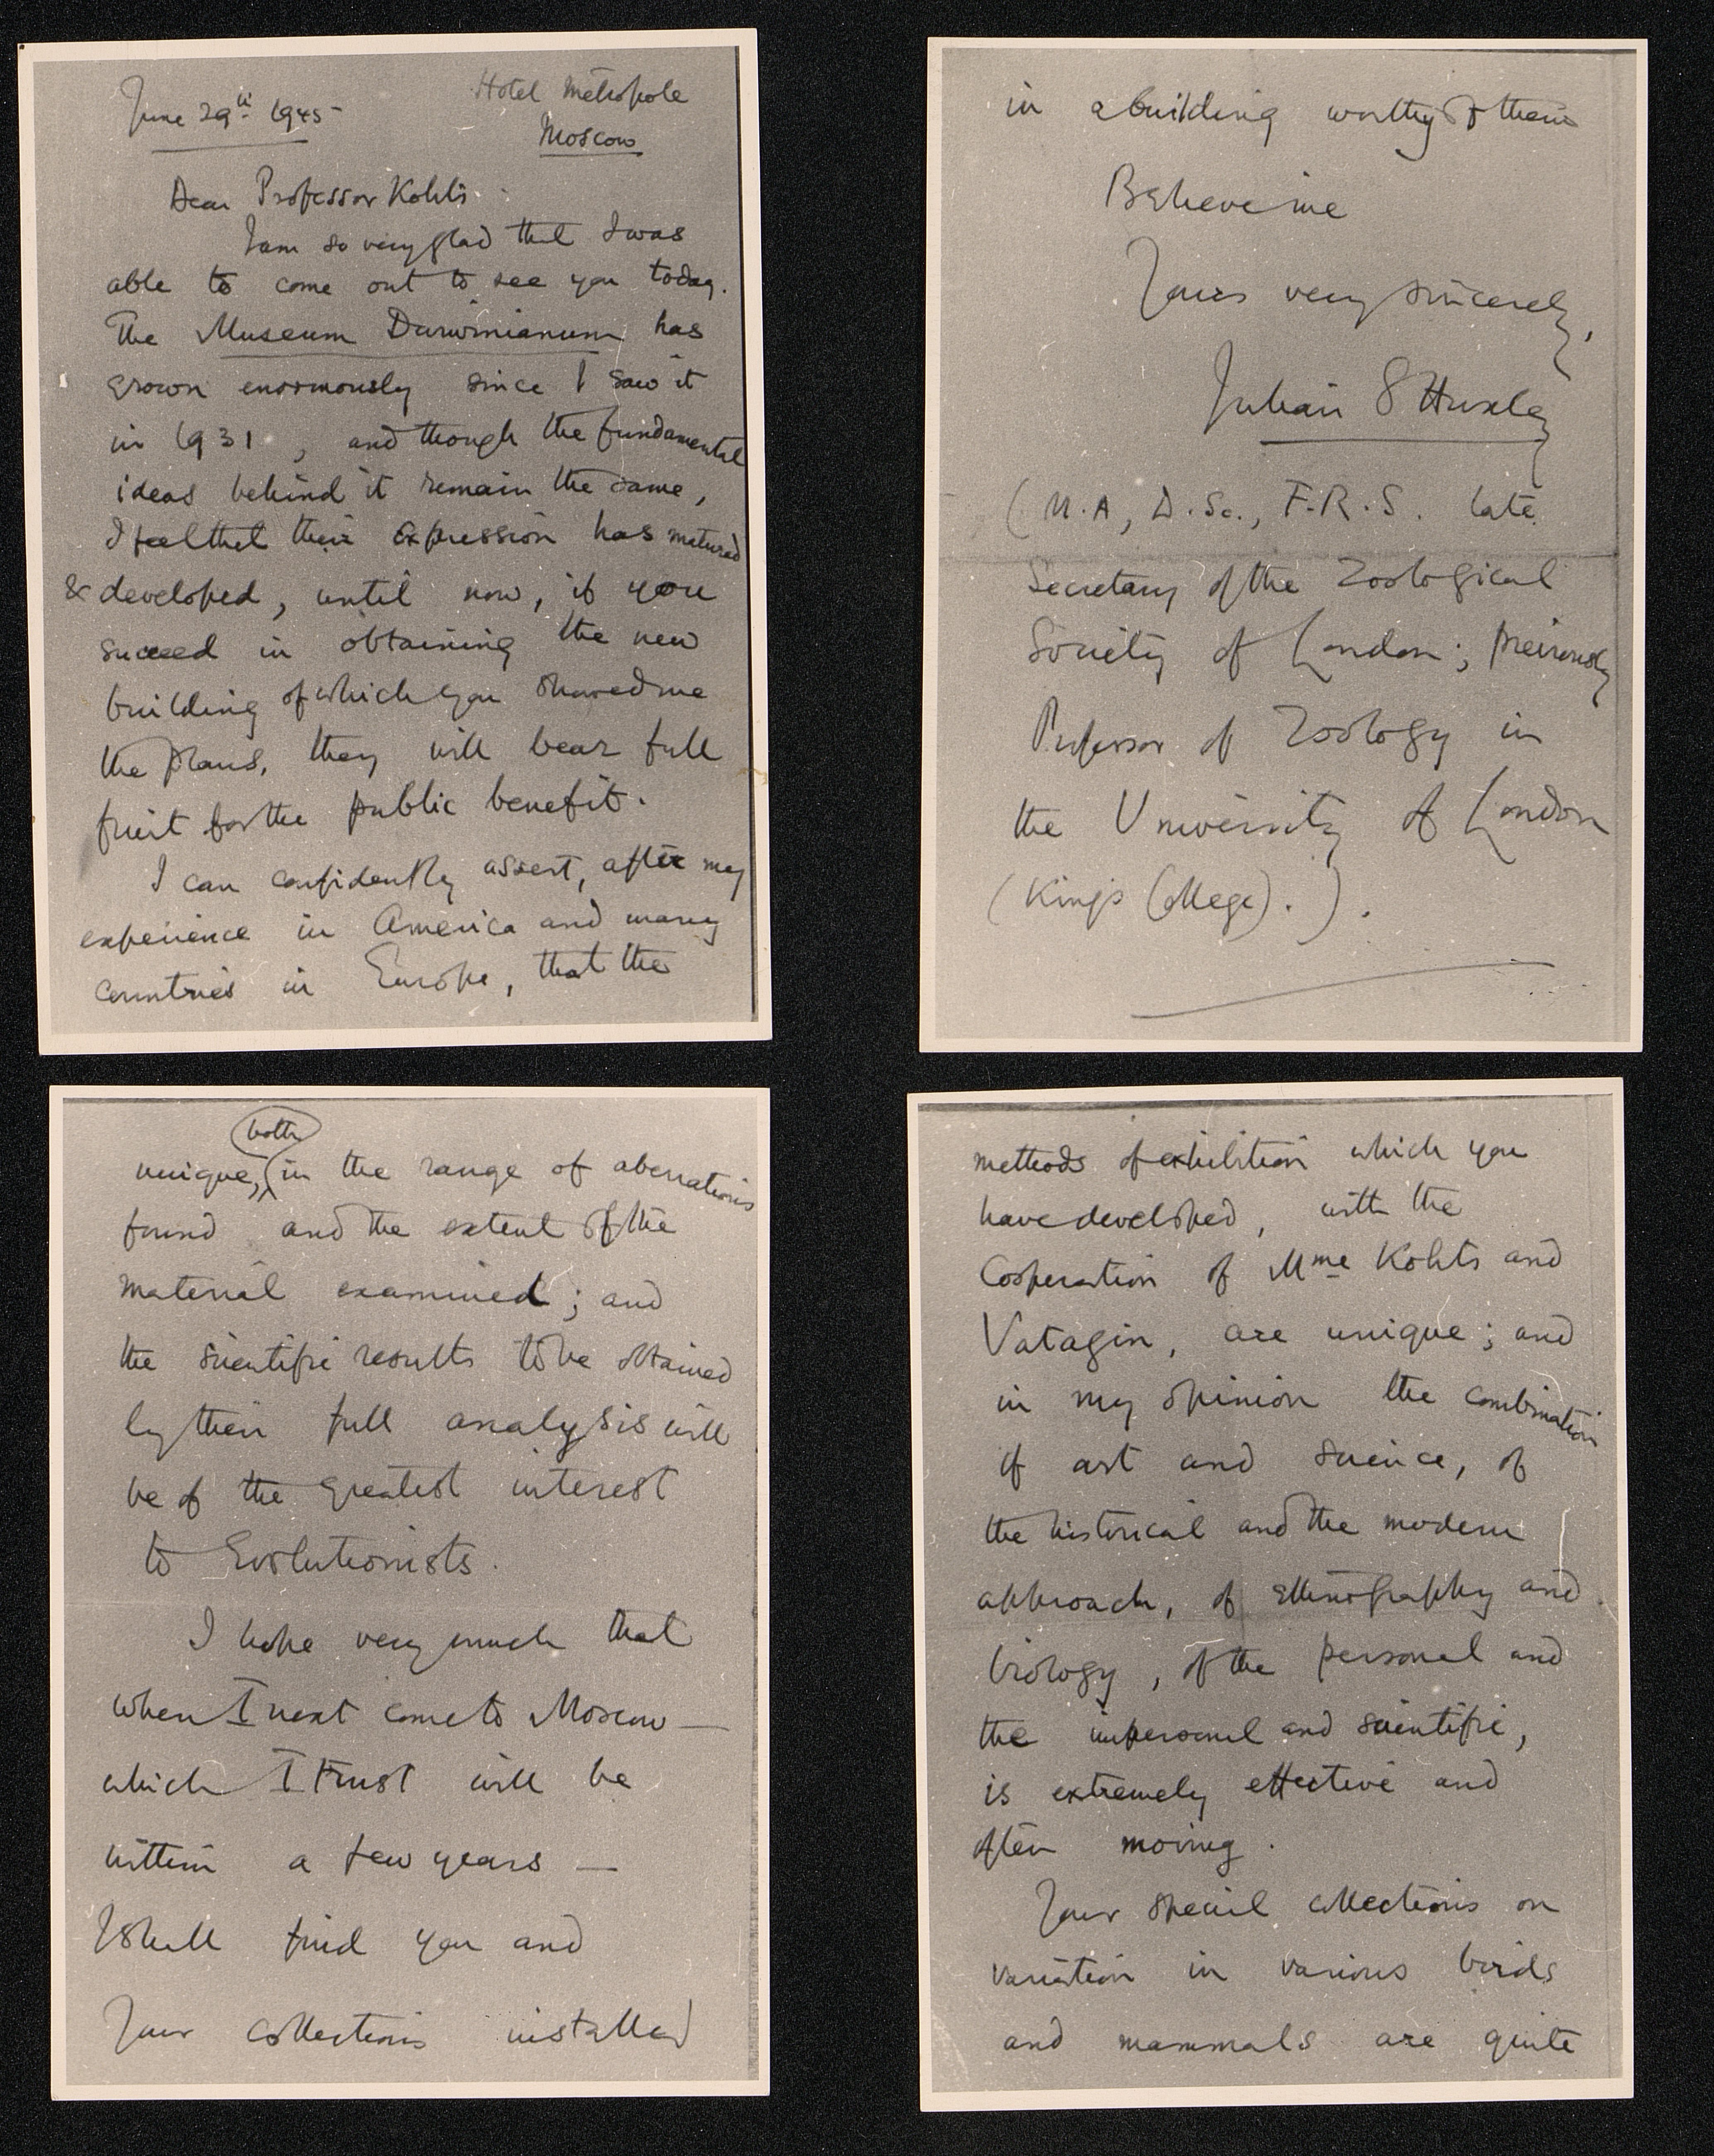 June 29th 1945
Hotel Métropole
Moscow
Dear Professor Kohts
I am so very glad that I was
able to come out to see you today.
The Museum Darwinianum has
grown enormously since I saw it
in 1931, and though the fundamental
ideas behind it remain the same,
I feel that their expression has matured
& developed, until now, if you
succeed in obtaining the new
building of which you showed me
the plans, they will bear full
fruit for the public benefit.
I can confidently assert, after my
experience in America and many
countries in Europe, that the
methods of exhibition which you
have developed, with the
Cooperation of Mme Kohts and
Vatagin, are unique; and
in my opinion the combination
of art and science, of
the historical and the modern
approach, of ethnography and
biology, of the personal and
the impersonal and scientific,
is extremely effective and
often moving.
Your special collections on
variation in various birds
and mammals are quite
unique, both in the range of aberrations
found and the extent of the
material examined; and
the scientific results to be obtained
by their full analysis will
be of the greatest interest
to Evolutionists.
I hope very much that
when I next come to Moscow —
which I trust will be
within a few years —
I shall find you and
Your collections installed
in a building worthy of them
Believe me
Yours very sincerely,
Julian S Huxley
(M.A, D.Sc., F.R.S. late
Secretary of the Zoological
Society of London; previously
Professor of Zoology in
the University of London
(Kings College).).